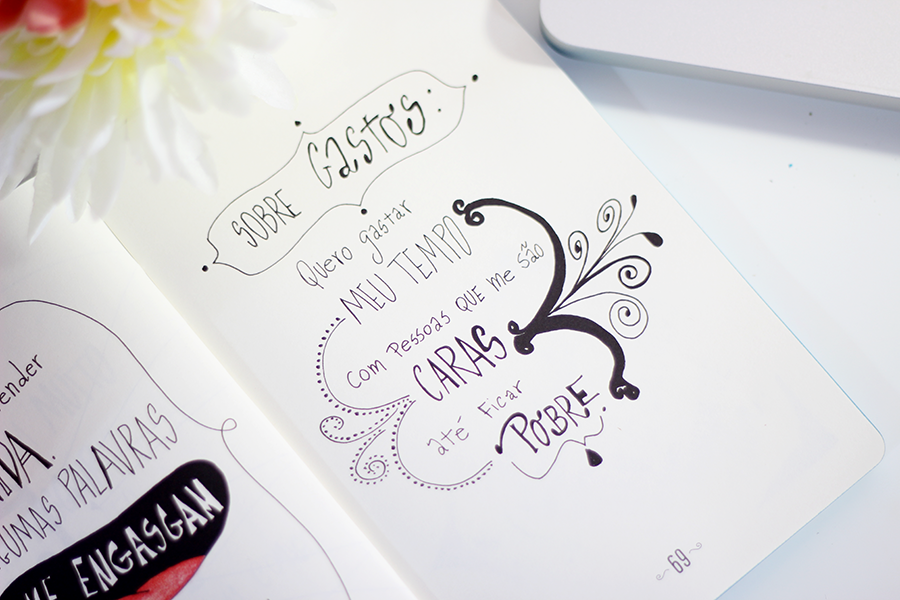 ender
VIDA.
GUMAS PALAVRAS
ME ENGASGAM
SOBRE GASTOS:
Quero gastar
MEU TEMPO
com pessoas QUE me são
CARAS
até ficar
POBRE.
69